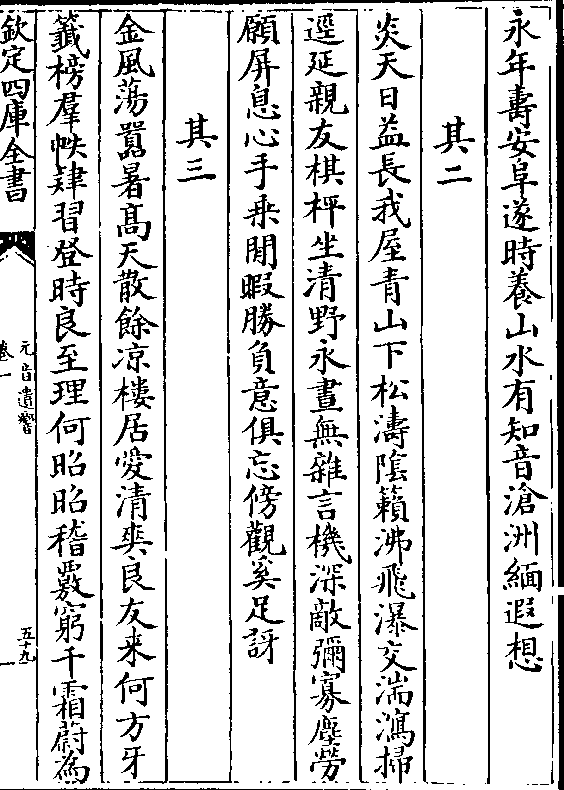 永年壽安阜遂時養山水有知音滄洲緬遐想
其二
炎天日益長我屋青山下松濤陰籟沸飛瀑交湍瀉掃
逕延親友棋枰坐清野永晝無雜言機深敵彌寡塵勞
願屏息心手乗閒暇勝負意俱忘傍觀奚足訝
其三
金風蕩囂暑髙天散餘凉樓居愛清奭良友来何方牙
籤榜羣帙肄習登時良至理何昭昭稽覈窮千霜蔚為
欽定四庫全書
元音遺響
卷一
五十九